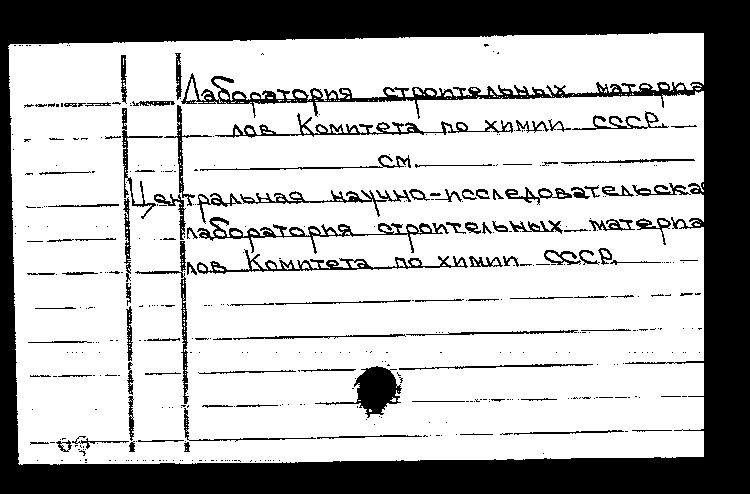 Лаборатория строительных материа
лов Комитета по химии СССР.
см.
Центральная научно-исследовательска
лаборатория строительных материа
лов Комитета по химии СССР.